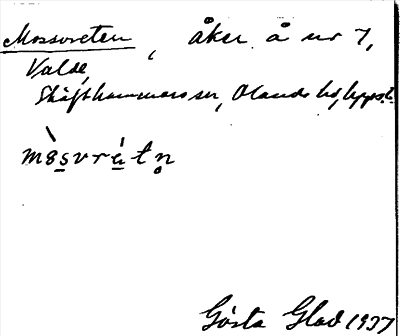 Mossvreten, åker å nr 7,
Valde,
Skäfthammars sn, Olands hd, Upps. l.
mòsvrétn
Gösta Glad 1937